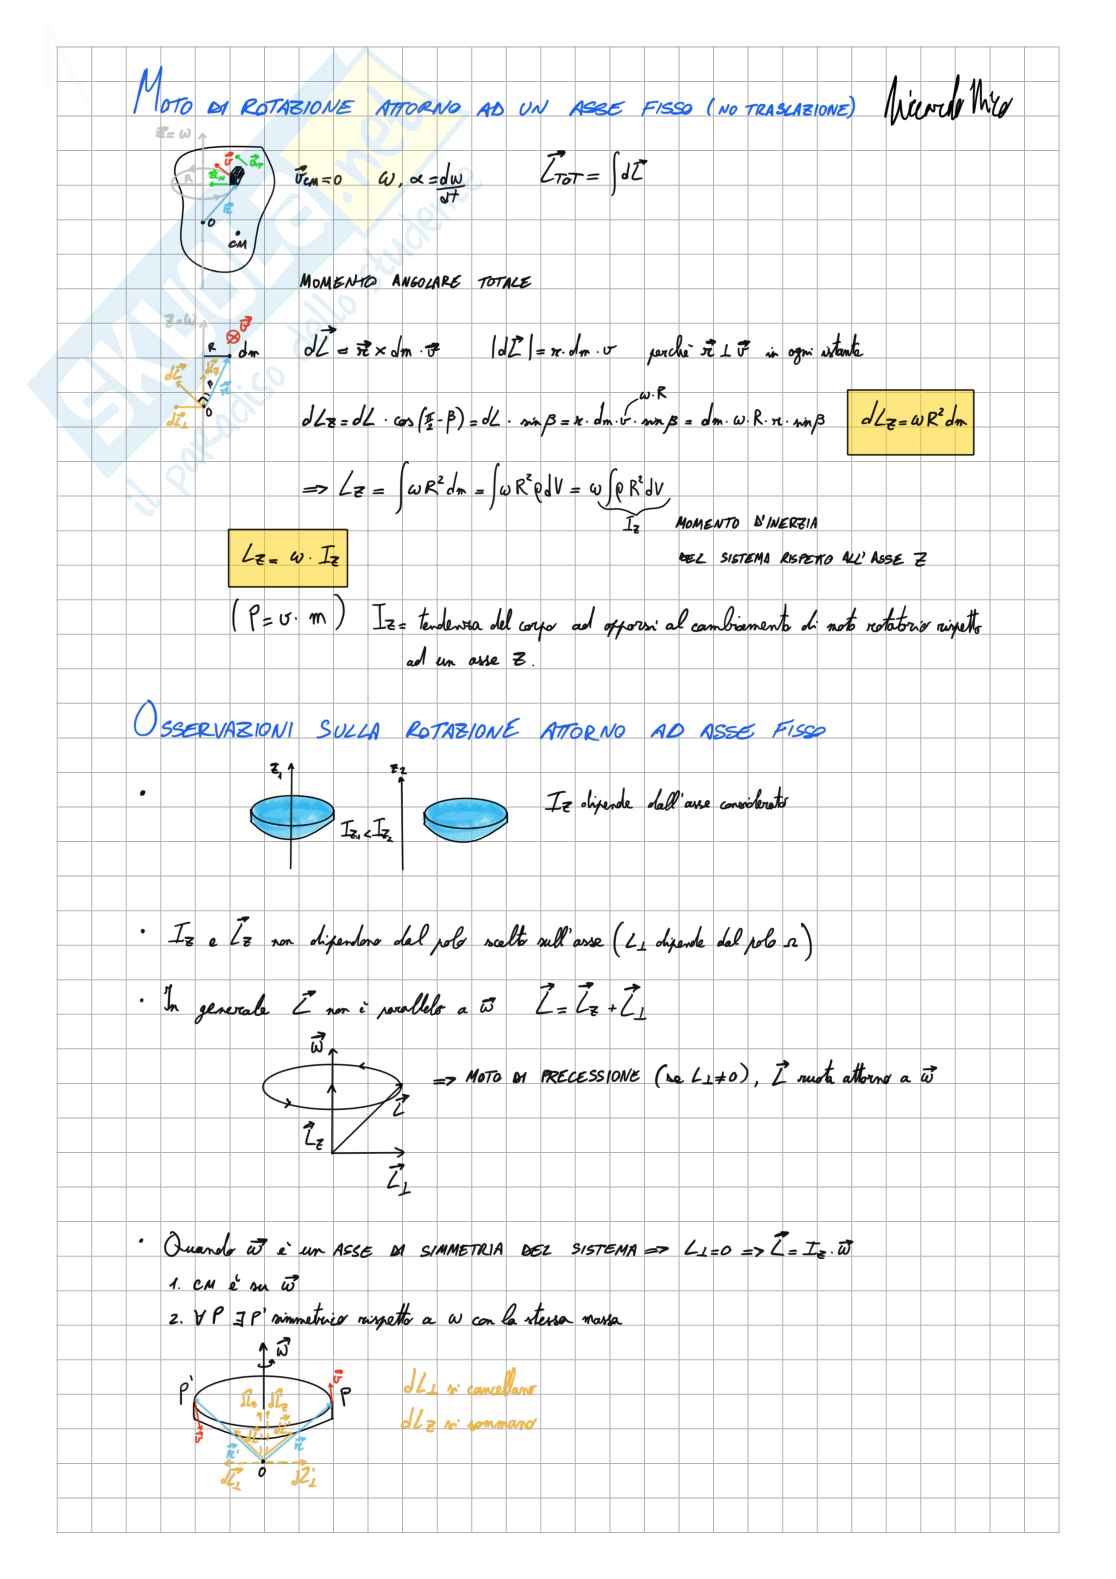 MOTO DI ROTAZIONE ATTORNO AD UN ASSE FISSO (NO TRASLAZIONE) Riccardo Mico
z≡ω
v
R
r
O
CM
v_CM=0 ω, α=dω/dt L_TOT = ∫dL
MOMENTO ANGOLARE TOTALE
z≡ω
v
R dm
dL
r
β
O
dL⊥
dL = r × dm · v |dL| = r · dm · v perché r ⊥ v in ogni istante
ω·R
dLz = dL · cos(π/2 - β) = dL · sinβ = r · dm · v · sinβ = dm · ω · R · r · sinβ dLz = ωR²dm
⇒ Lz = ∫ωR²dm = ∫ωR²ρdV = ω∫ρR²dV
Iz MOMENTO D'INERZIA
DEL SISTEMA RISPETTO ALL'ASSE Z
Lz = ω · Iz
(P = v · m) Iz = tendenza del corpo ad opporsi al cambiamento di moto rotatorio rispetto
ad un asse z.
OSSERVAZIONI SULLA ROTAZIONE ATTORNO AD ASSE FISSO
z₁ z₂
• Iz dipende dall'asse considerato
Iz₁ < Iz₂
• Iz e Lz non dipendono dal polo scelto sull'asse (L⊥ dipende dal polo Ω)
• In generale L non è parallelo a ω L = Lz + L⊥
ω
⇒ MOTO DI PRECESSIONE (se L⊥≠0), L ruota attorno a ω
L
Lz
L⊥
• Quando ω è un ASSE DI SIMMETRIA DEL SISTEMA ⇒ L⊥=0 ⇒ L = Iz · ω
1. CM è su ω
2. ∀P ∃P' simmetrico rispetto a ω con la stessa massa
ω
v
P' P
dLz dLz
dL⊥ si cancellano
dLz si sommano
v
r' r
O
dL⊥ dL⊥
SKUOLA.net
il paradiso dello studente